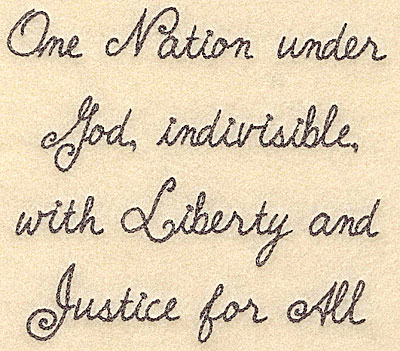 One Nation under
God, indivisible,
with Liberty and
Justice for All